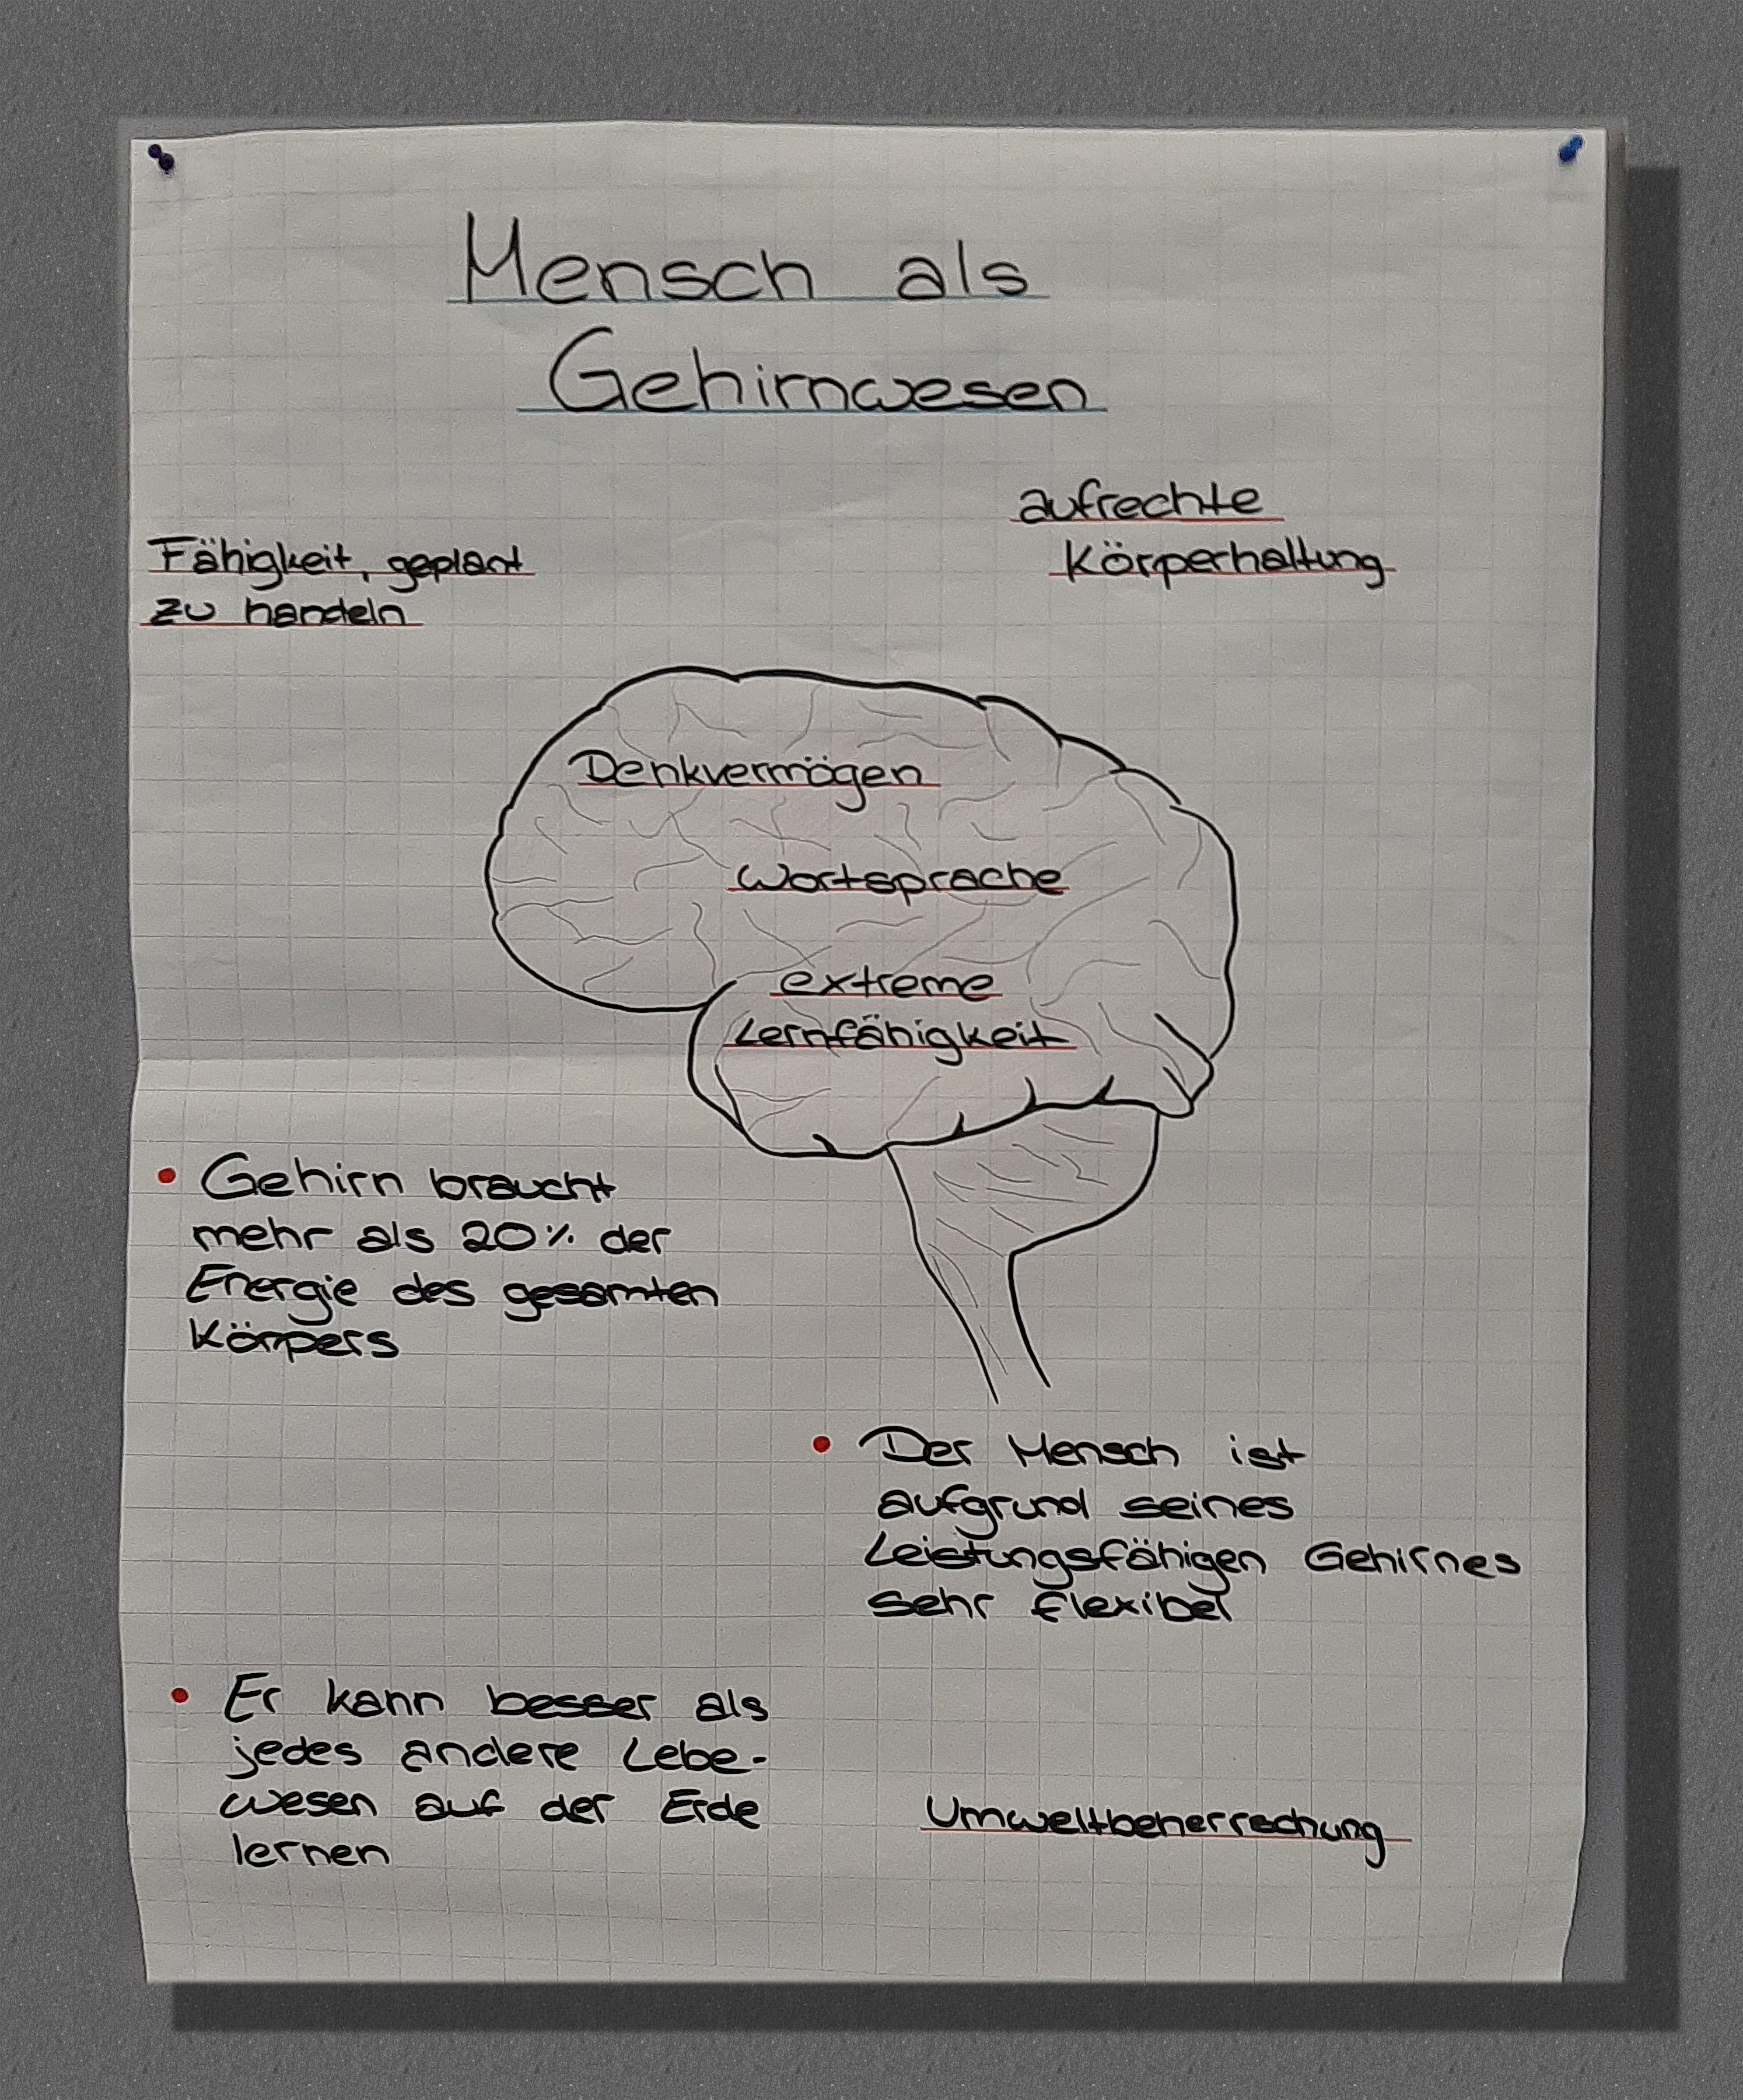 Mensch als
Gehirnwesen
aufrechte
Körperhaltung
Fähigkeit, geplant
zu handeln
Denkvermögen
Wortsprache
extreme
Lernfähigkeit
• Gehirn braucht
mehr als 20% der
Energie des gesamten
Körpers
• Der Mensch ist
aufgrund seines
Leistungsfähigen Gehirnes
sehr flexibel
• Er kann besser als
jedes andere Lebe-
wesen auf der Erde
lernen
Umweltbeherrschung